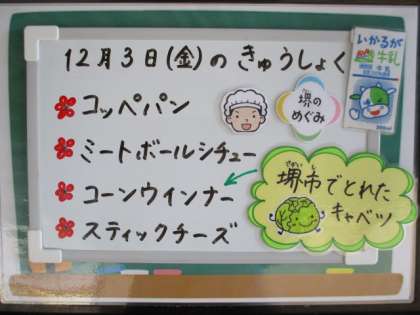 12月3日(金)のきゅうしょく
コッペパン
ミートボールシチュー
コーンウインナー
スティックチーズ
堺の
めぐみ
いかるが
牛乳
堺市でとれた
キャベツ